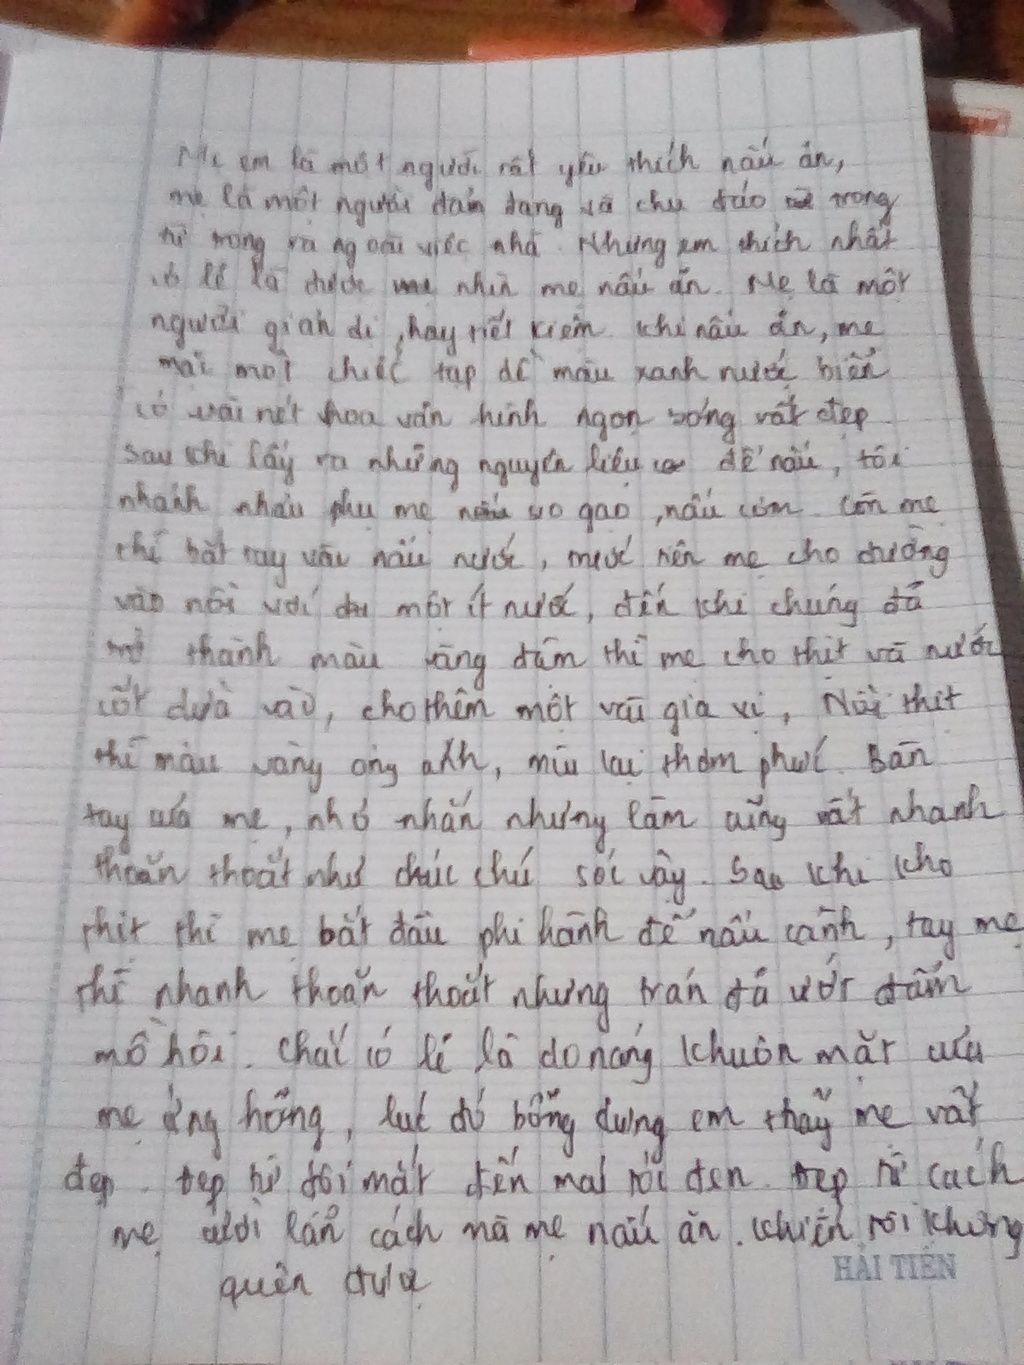 Mẹ em là một người rất yêu thích nấu ăn,
mẹ là một người đảm đang và chu đáo trong
từ trong ra ngoài việc nhà. Nhưng em thích nhất
có lẽ là được nhìn mẹ nấu ăn. Mẹ là một
người giản dị, hay tiết kiệm. Khi nấu ăn, mẹ
một chiếc tạp dề màu xanh nước biển
có vài nét hoa văn hình ngọn sóng rất đẹp.
Sau khi lấy ra những nguyên liệu để nấu, tôi
nhanh nhảu phụ mẹ vo gạo, nấu cơm. Còn mẹ
thì bắt tay vào nấu nước, trước tiên mẹ cho đường
vào nồi với một ít nước, đến khi chúng đã
trở thành màu vàng đậm thì mẹ cho thịt và nước
cốt dừa vào, cho thêm một vài gia vị, Nồi thịt
thì màu vàng óng ánh, mùi lại thơm phức. Bàn
tay của mẹ, nhỏ nhắn nhưng làm cũng rất nhanh
thoăn thoắt như chú sóc vậy. Sau khi kho
thịt thì mẹ bắt đầu phi hành để nấu canh, tay mẹ
thì nhanh thoăn thoắt nhưng trán đã ướt đẫm
mồ hôi. Chắc có lẽ là do nóng khuôn mặt của
mẹ ửng hồng, lúc đó bỗng dưng em thấy mẹ rất
đẹp. Đẹp từ đôi mắt đến mái tóc đen. Đẹp từ cách
mẹ cười lẫn cách mà mẹ nấu ăn. Khiến tôi không
quên được
HẢI TIẾN